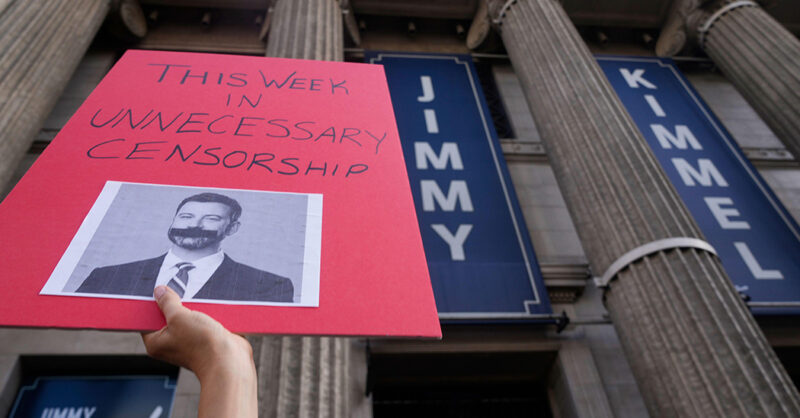 THIS WEEK
IN
UNNECESSARY
CENSORSHIP
JIMMY
KIMMEL
JIMMY